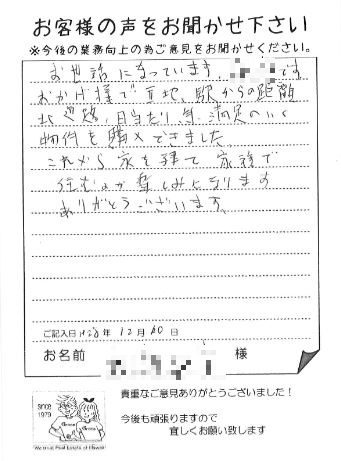 お客様の声をお聞かせ下さい
※今後の業務向上の為ご意見をお聞かせください。
お世話になっています。です
おかげ様で、駅からの距離
日当たり等、満足のいく
物件を購入できました
これから家を建て家族で
住むのが楽しみになります
ありがとうございます。
ご記入日 年 12月 日
お名前 様
貴重なご意見ありがとうございました！
今後も頑張りますので
宜しくお願い致します
since
1979